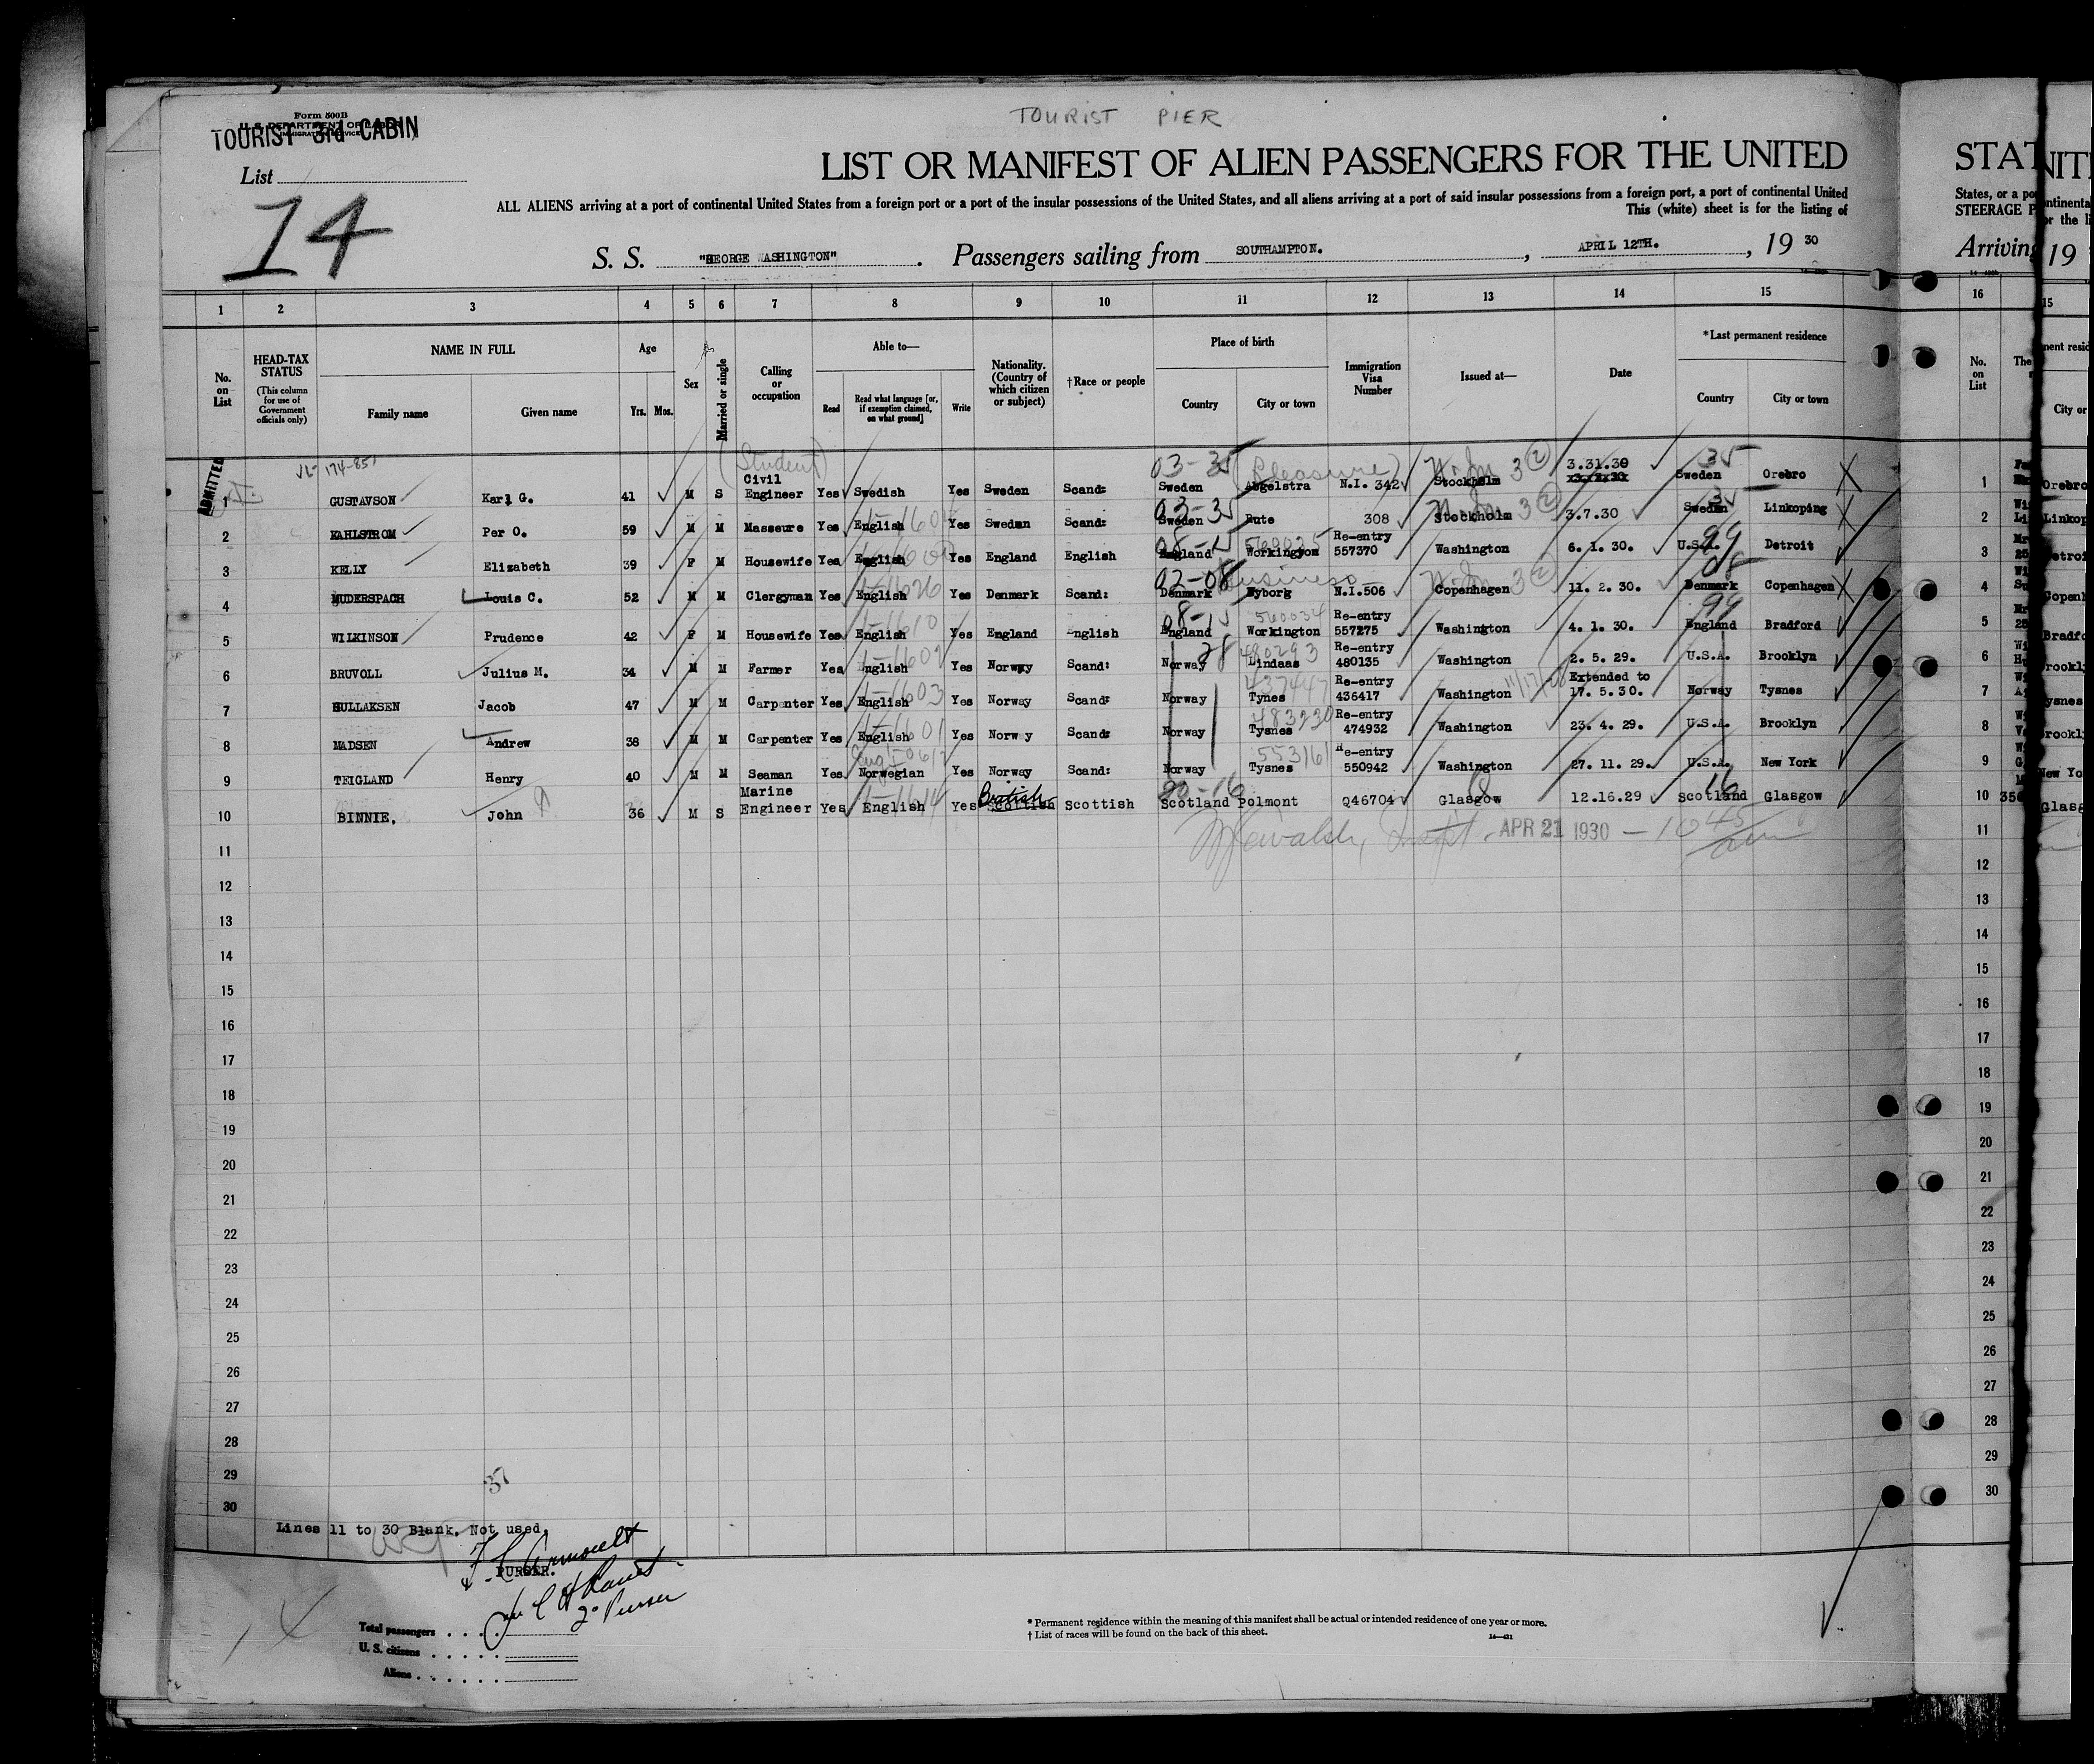 TOURIST PIER
Form 500B
U. S. DEPARTMENT OF LABOR
IMMIGRATION SERVICE
TOURIST 3rd CABIN
List
14
LIST OR MANIFEST OF ALIEN PASSENGERS FOR THE UNITED
ALL ALIENS arriving at a port of continental United States from a foreign port or a port of the insular possessions of the United States, and all aliens arriving at a port of said insular possessions from a foreign port, a port of continental United
This (white) sheet is for the listing of
S. S. "GEORGE WASHINGTON" . Passengers sailing from SOUTHAMPTON. , APRIL 12TH. , 19 30
1 2 3 4 5 6 7 8 9 10 11 12 13 14 15
No. on List
HEAD-TAX STATUS (This column for use of Government officials only)
NAME IN FULL
Family name Given name
Age
Yrs. Mos.
Sex
Married or single
Calling or occupation
Able to—
Read Read what language [or, if exemption claimed, on what ground] Write
Nationality. (Country of which citizen or subject)
†Race or people
Place of birth
Country City or town
Immigration Visa Number
Issued at—
Date
*Last permanent residence
Country City or town
ADMITTED
(Student) 03-35 (Pleasure) 35
1 GUSTAVSON Karl G. 41 M S Civil Engineer Yes Swedish Yes Sweden Scand: Sweden Abgelstra N.I. 342 Stockholm 3.31.30 Sweden Orebro
03-35 35
2 KAHLSTROM Per O. 59 M M Masseure Yes English Yes Sweden Scand: Sweden Rute 308 Stockholm 3.7.30 Sweden Linkoping
08-15 560025 99
3 KELLY Elizabeth 39 F M Housewife Yes English Yes England English England Workington Re-entry 557370 Washington 6. 1. 30. U.S.A. Detroit
02-08 Business 08
4 MUDERSPACH Louis C. 52 M M Clergyman Yes English Yes Denmark Scand: Denmark Wyborg N.I.506 Copenhagen 11. 2. 30. Denmark Copenhagen
08-15 560034 99
5 WILKINSON Prudence 42 F M Housewife Yes English Yes England English England Workington Re-entry 557275 Washington 4. 1. 30. England Bradford
28 480293
6 BRUVOLL Julius M. 34 M M Farmer Yes English Yes Norway Scand: Norway Lindaas Re-entry 480135 Washington 2. 5. 29. U.S.A. Brooklyn
437447
7 HULLAKSEN Jacob 47 M M Carpenter Yes English Yes Norway Scand: Norway Tynes Re-entry 436417 Washington Extended to 17. 5. 30. Norway Tysnes
483230
8 MADSEN Andrew 38 M M Carpenter Yes English Yes Norway Scand: Norway Tysnes Re-entry 474932 Washington 23. 4. 29. U.S.A. Brooklyn
553161
9 TEIGLAND Henry 40 M M Seaman Yes Norwegian Yes Norway Scand: Norway Tysnes Re-entry 550942 Washington 27. 11. 29. U.S.A. New York
British 16
10 BINNIE. John 36 M S Marine Engineer Yes English Yes Scottish Scottish Scotland Polmont Q46704 Glasgow 12.16.29 Scotland Glasgow
APR 21 1930
11
12
13
14
15
16
17
18
19
20
21
22
23
24
25
26
27
28
29
30
37
Lines 11 to 30 Blank. Not used.
PURSER.
2º Purser
Total passengers
U. S. citizens
Aliens
* Permanent residence within the meaning of this manifest shall be actual or intended residence of one year or more.
† List of races will be found on the back of this sheet.
STAT
States, or a po
STEERAGE P
Arriving
16
No. on List
The
1
2
3
4
5
6
7
8
9
10
11
12
13
14
15
16
17
18
19
20
21
22
23
24
25
26
27
28
29
30
19
15
City or